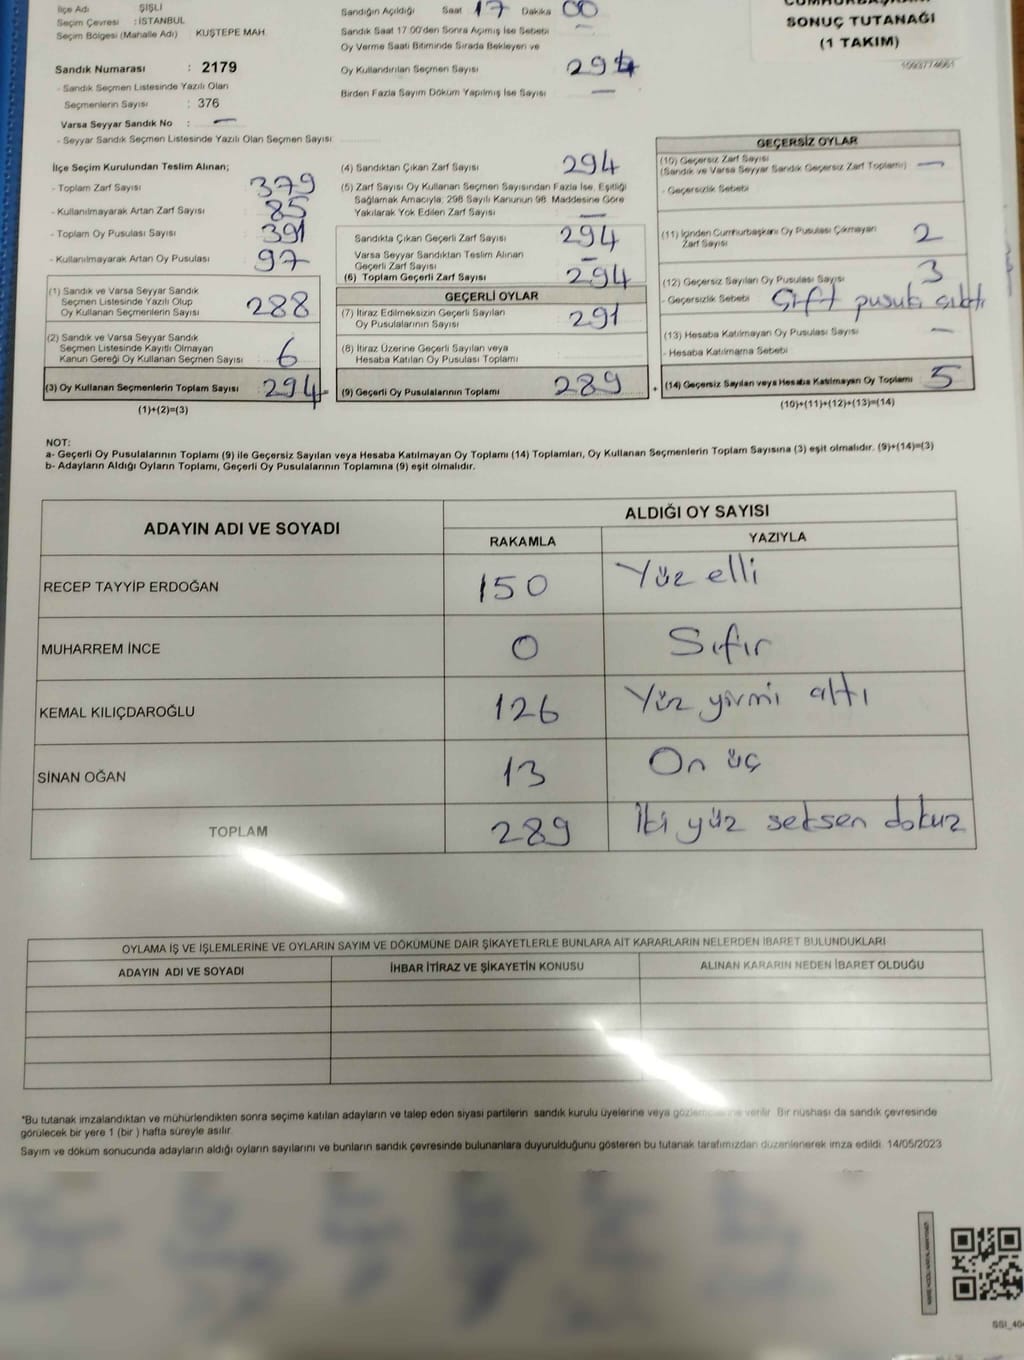 İlçe Adı ŞİŞLİ
Seçim Çevresi : İSTANBUL
Seçim Bölgesi (Mahalle Adı) KUŞTEPE MAH.
Sandık Numarası : 2179
- Sandık Seçmen Listesinde Yazılı Olan
Seçmenlerin Sayısı : 376
Varsa Seyyar Sandık No : —
- Seyyar Sandık Seçmen Listesinde Yazılı Olan Seçmen Sayısı
Sandığın Açıldığı Saat 17 Dakika 00
Sandık Saat 17.00'den Sonra Açılmış İse Sebebi —
Oy Verme Saati Bitiminde Sırada Bekleyen ve
Oy Kullandırılan Seçmen Sayısı 294
Birden Fazla Sayım Döküm Yapılmış İse Sayısı —
SONUÇ TUTANAĞI
(1 TAKIM)
İlçe Seçim Kurulundan Teslim Alınan;
- Toplam Zarf Sayısı 379
- Kullanılmayarak Artan Zarf Sayısı 85
- Toplam Oy Pusulası Sayısı 391
- Kullanılmayarak Artan Oy Pusulası 97
(1) Sandık ve Varsa Seyyar Sandık
Seçmen Listesinde Yazılı Olup
Oy Kullanan Seçmenlerin Sayısı 288
(2) Sandık ve Varsa Seyyar Sandık
Seçmen Listesinde Kayıtlı Olmayan
Kanun Gereği Oy Kullanan Seçmen Sayısı 6
(3) Oy Kullanan Seçmenlerin Toplam Sayısı 294 =
(1)+(2)=(3)
(4) Sandıktan Çıkan Zarf Sayısı 294
(5) Zarf Sayısı Oy Kullanan Seçmen Sayısından Fazla İse, Eşitliği
Sağlamak Amacıyla; 298 Sayılı Kanunun 98. Maddesine Göre
Yakılarak Yok Edilen Zarf Sayısı —
Sandıkta Çıkan Geçerli Zarf Sayısı 294
Varsa Seyyar Sandıktan Teslim Alınan
Geçerli Zarf Sayısı —
(6) Toplam Geçerli Zarf Sayısı 294
GEÇERLİ OYLAR
(7) İtiraz Edilmeksizin Geçerli Sayılan
Oy Pusulalarının Sayısı 291
(8) İtiraz Üzerine Geçerli Sayılan veya
Hesaba Katılan Oy Pusulası Toplamı
(9) Geçerli Oy Pusulalarının Toplamı 289 +
GEÇERSİZ OYLAR
(10) Geçersiz Zarf Sayısı
(Sandık ve Varsa Seyyar Sandık Geçersiz Zarf Toplamı) —
- Geçersizlik Sebebi
(11) İçinden Cumhurbaşkanı Oy Pusulası Çıkmayan
Zarf Sayısı 2
(12) Geçersiz Sayılan Oy Pusulası Sayısı 3
- Geçersizlik Sebebi Çift pusula çıktı
(13) Hesaba Katılmayan Oy Pusulası Sayısı —
- Hesaba Katılmama Sebebi
(14) Geçersiz Sayılan veya Hesaba Katılmayan Oy Toplamı 5
(10)+(11)+(12)+(13)=(14)
NOT:
a- Geçerli Oy Pusulalarının Toplamı (9) ile Geçersiz Sayılan veya Hesaba Katılmayan Oy Toplamı (14) Toplamları, Oy Kullanan Seçmenlerin Toplam Sayısına (3) eşit olmalıdır. (9)+(14)=(3)
b- Adayların Aldığı Oyların Toplamı, Geçerli Oy Pusulalarının Toplamına (9) eşit olmalıdır.
ADAYIN ADI VE SOYADI ALDIĞI OY SAYISI
RAKAMLA YAZIYLA
RECEP TAYYİP ERDOĞAN 150 Yüz elli
MUHARREM İNCE 0 Sıfır
KEMAL KILIÇDAROĞLU 126 Yüz yirmi altı
SİNAN OĞAN 13 On üç
TOPLAM 289 İki yüz seksen dokuz
OYLAMA İŞ VE İŞLEMLERİNE VE OYLARIN SAYIM VE DÖKÜMÜNE DAİR ŞİKAYETLERLE BUNLARA AİT KARARLARIN NELERDEN İBARET BULUNDUKLARI
ADAYIN ADI VE SOYADI İHBAR İTİRAZ VE ŞİKAYETİN KONUSU ALINAN KARARIN NEDEN İBARET OLDUĞU
*Bu tutanak imzalandıktan ve mühürlendikten sonra seçime katılan adayların ve talep eden siyasi partilerin sandık kurulu üyelerine veya verilir. Bir nüshası da sandık çevresinde
görülecek bir yere 1 (bir ) hafta süreyle asılır.
Sayım ve döküm sonucunda adayların aldığı oyların sayılarını ve bunların sandık çevresinde bulunanlara duyurulduğunu gösteren bu tutanak tarafımızdan düzenlenerek imza edildi. 14/05/2023